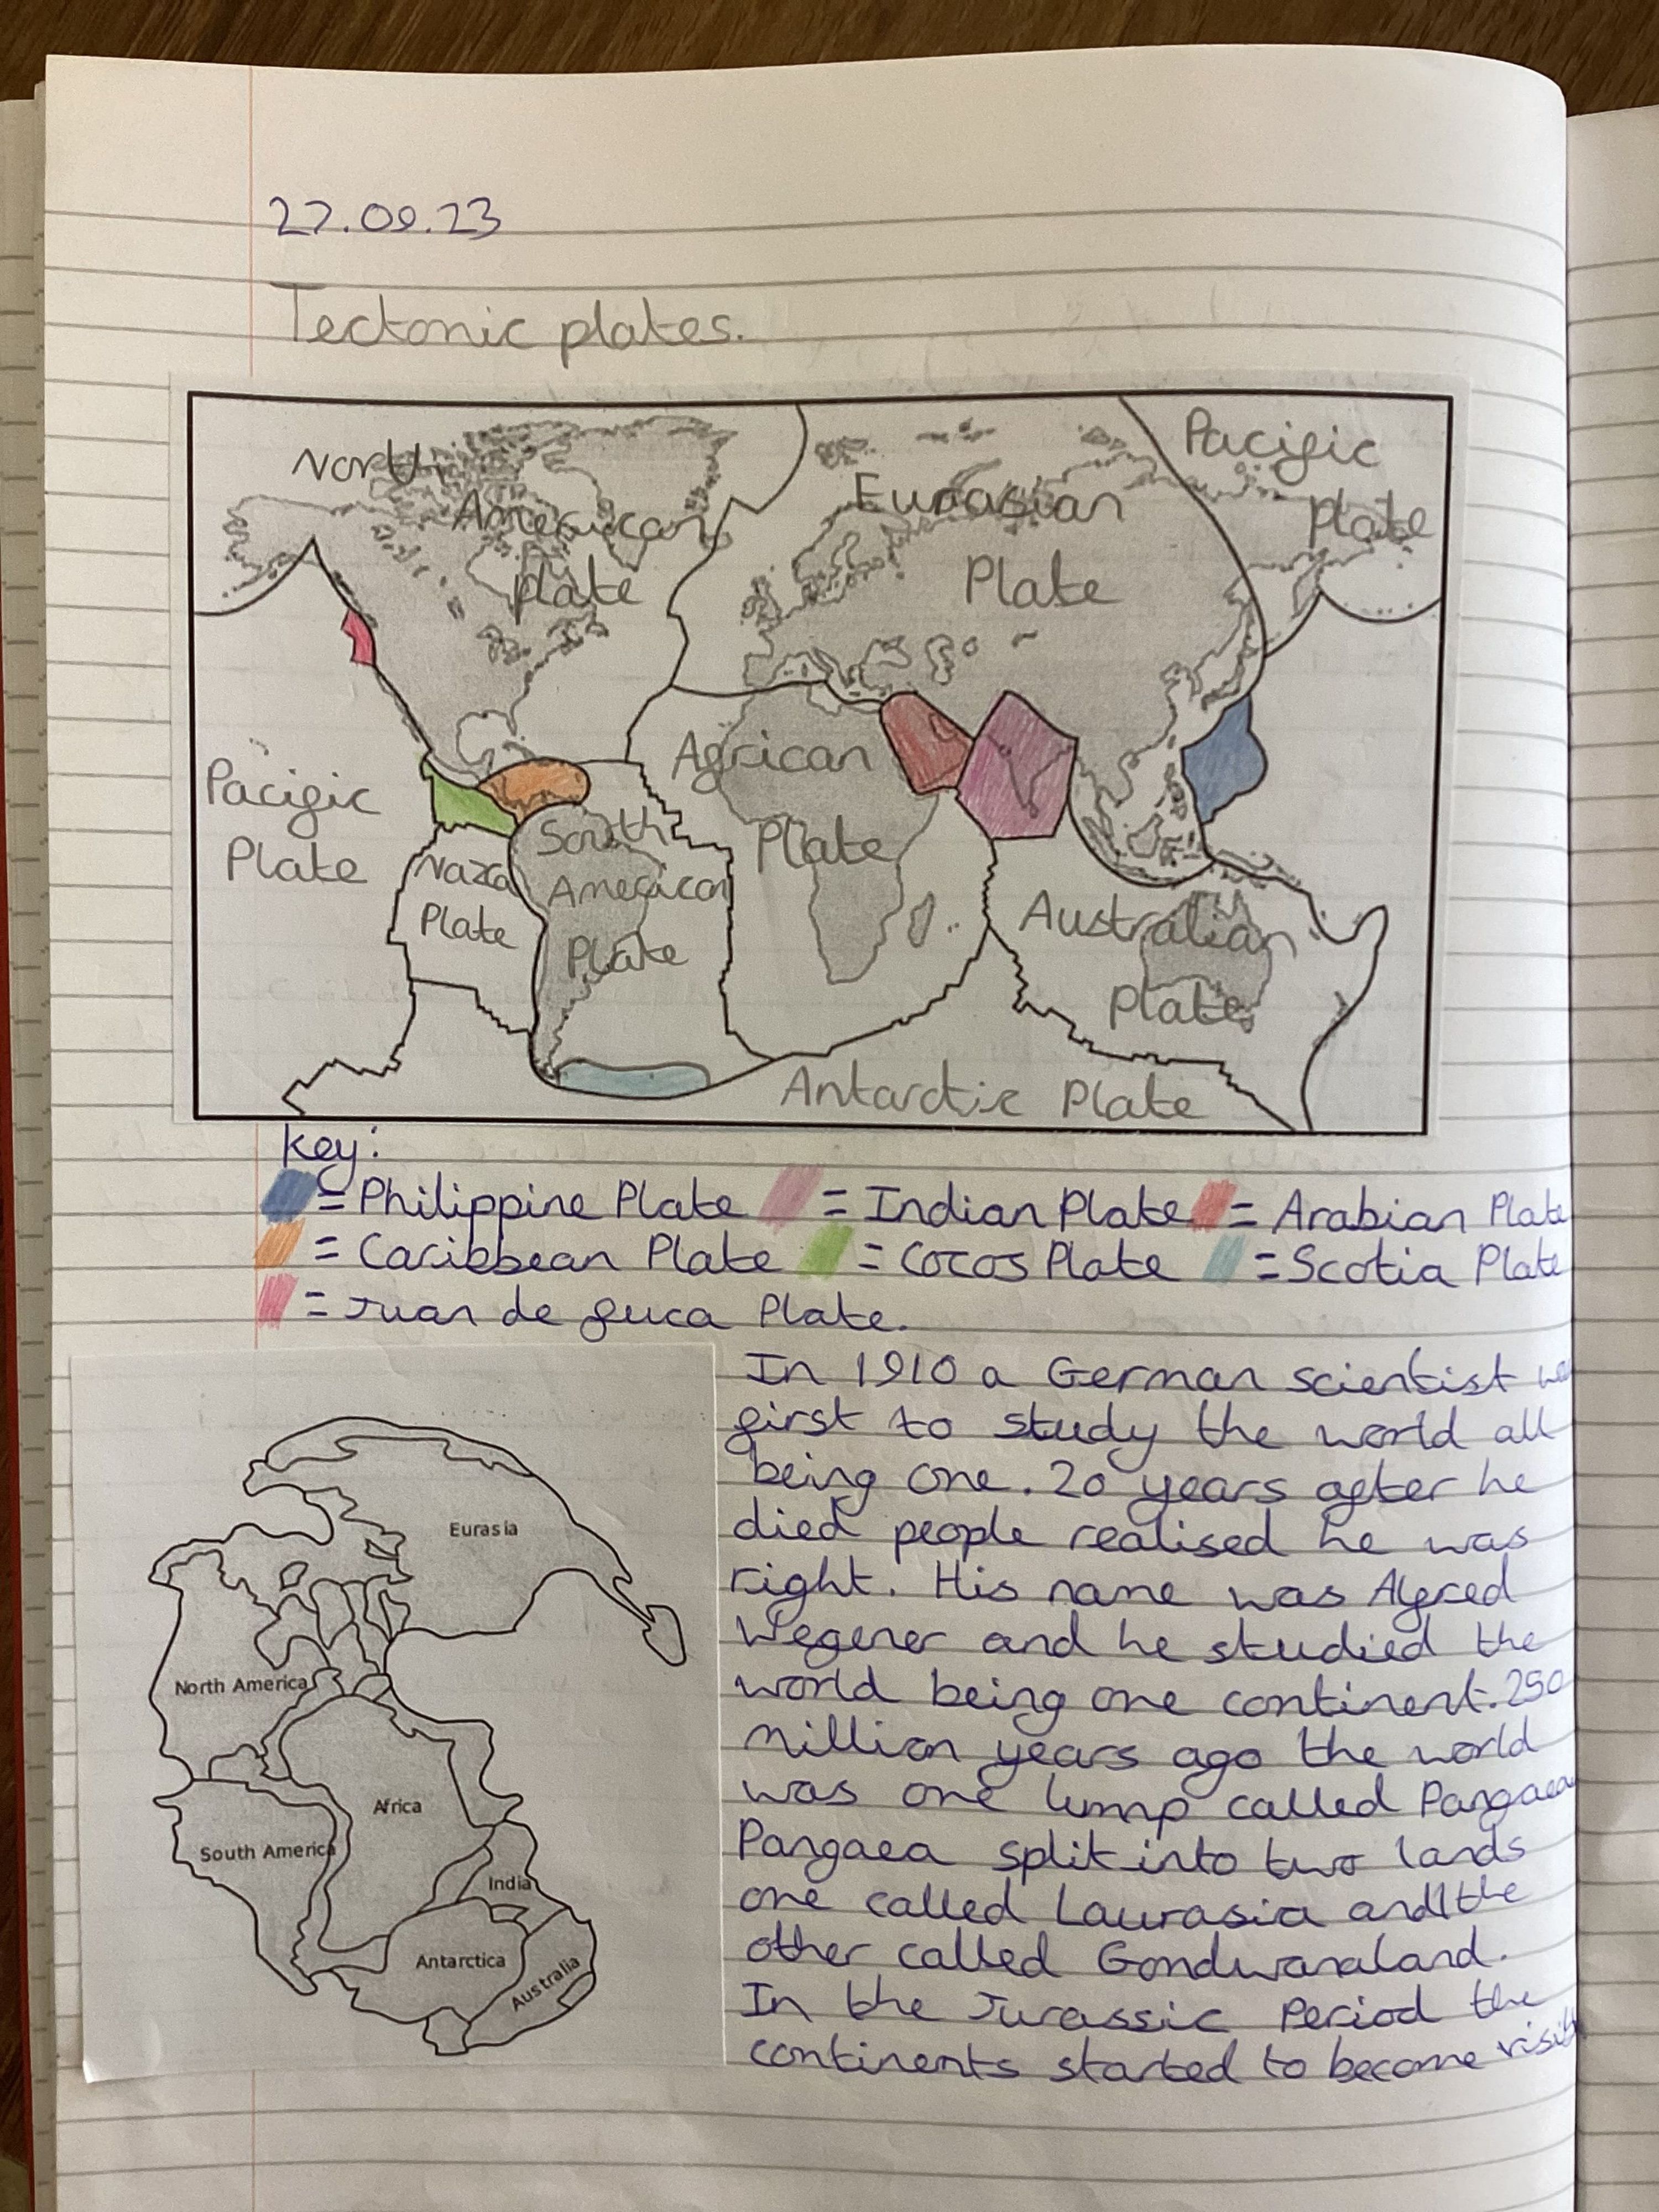 27.09.23
Tectonic plates.
North
American
plate
Eurasian
Plate
Pacific
Plate
Pacific
Plate
African
Plate
Nazca
Plate
South
American
Plate
Australian
Plate
Antarctic Plate
Key:
= Philippine Plate = Indian Plate = Arabian Plate
= Caribbean Plate = Cocos Plate = Scotia Plate
= Juan de fuca Plate.
Eurasia
North America
Africa
South America
India
Antarctica
Australia
In 1910 a German scientist
first to study the world all
being one. 20 years after he
died people realised he was
right. His name was Alfred
Wegener and he studied the
world being one continent. 250
million years ago the world
was one lump called Pangaea
Pangaea split into two lands
one called Laurasia and the
other called Gondwanaland.
In the Jurassic Period the
continents started to become